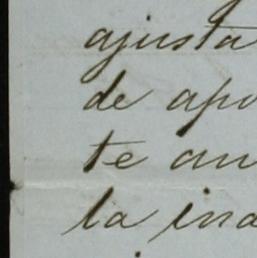 ajusta
de apo
te an
la ind